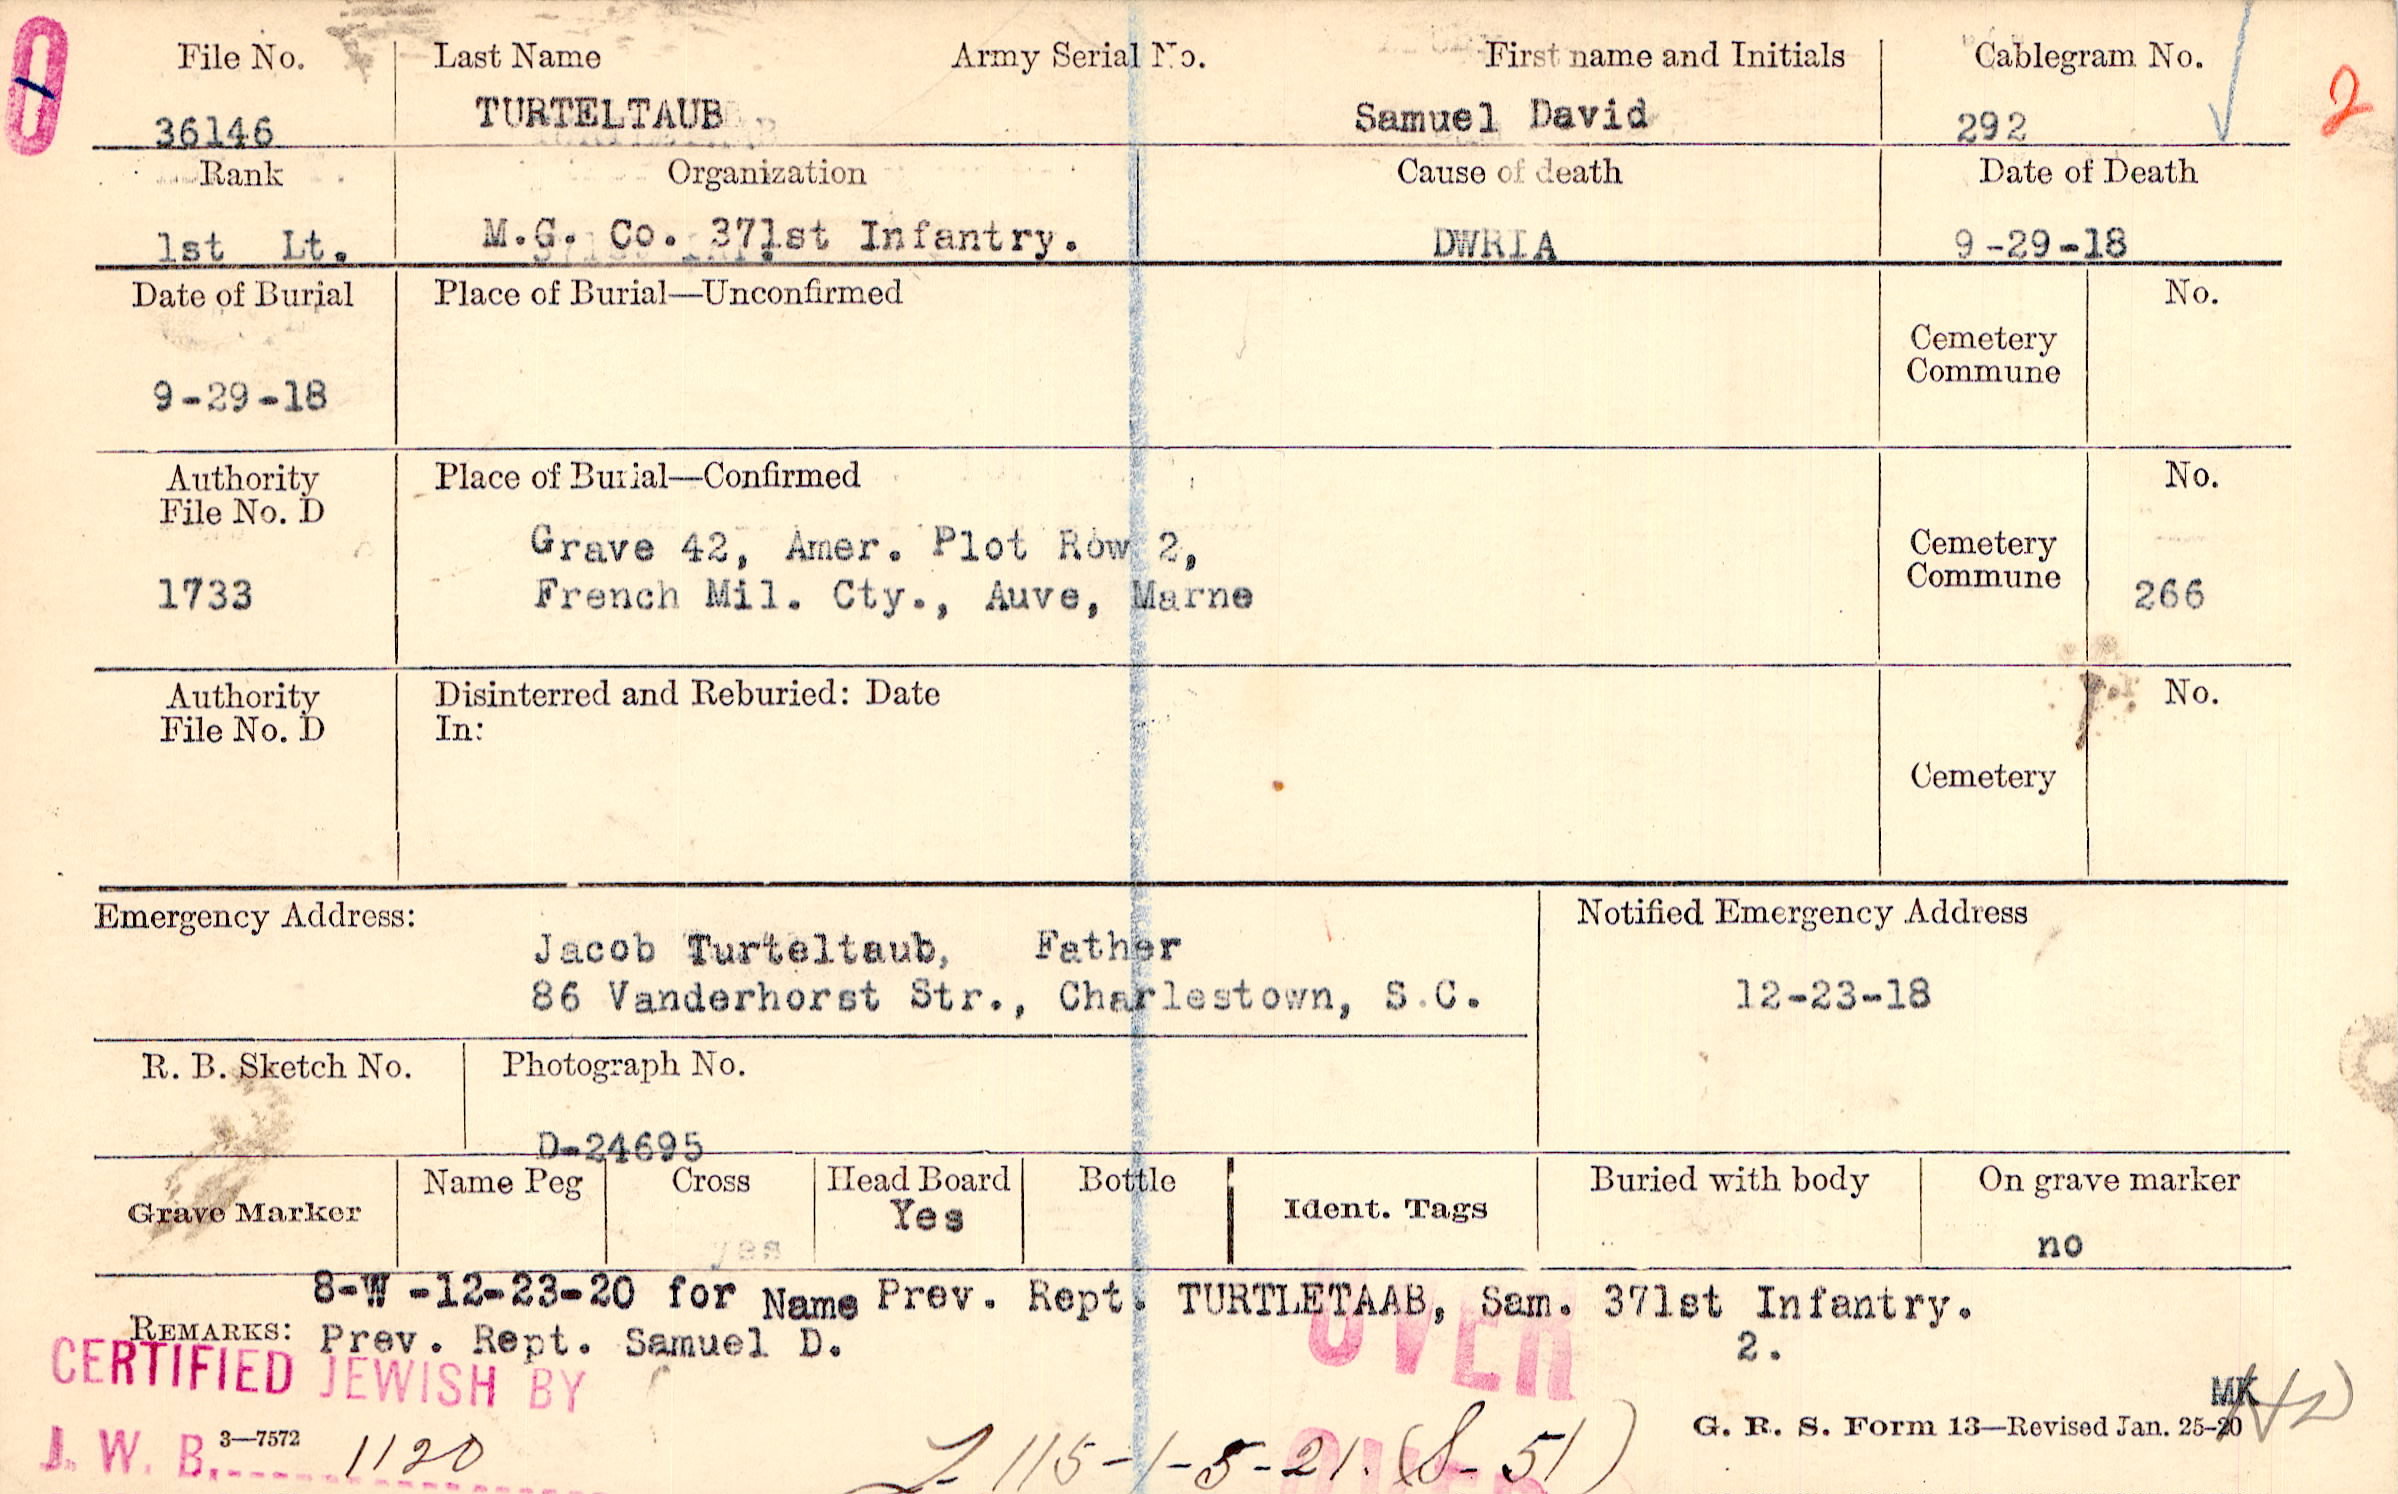 File No. Last Name Army Serial No. First name and Initials Cablegram No.
36146 TURTELTAUB Samuel David 292 2
Rank Organization Cause of death Date of Death
1st Lt. M.G. Co. 371st Infantry. DWRIA 9-29-18
Date of Burial Place of Burial—Unconfirmed No.
Cemetery
Commune
9-29-18
Authority Place of Burial—Confirmed No.
File No. D
Grave 42, Amer. Plot Row 2, Cemetery
1733 French Mil. Cty., Auve, Marne Commune 266
Authority Disinterred and Reburied: Date No.
File No. D In:
Cemetery
Emergency Address: Notified Emergency Address
Jacob Turteltaub, Father
86 Vanderhorst Str., Charlestown, S.C. 12-23-18
R. B. Sketch No. Photograph No.
D-24695
Grave Marker Name Peg Cross Head Board Bottle Ident. Tags Buried with body On grave marker
yes Yes no
8-W -12-23-20 for Name Prev. Rept. TURTLETAAB, Sam. 371st Infantry.
REMARKS: Prev. Rept. Samuel D. 2.
OVER
CERTIFIED JEWISH BY
MK
J. W. B. 3—7572 1120 115-1-5-21. (S-51) G. R. S. Form 13—Revised Jan. 25-20
OVER